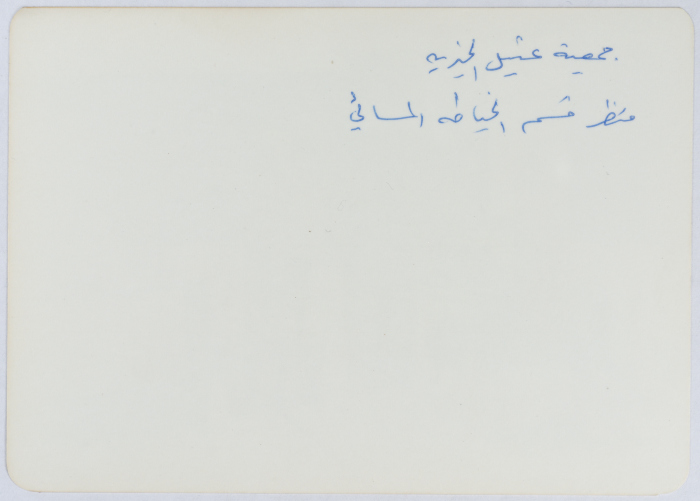 جمعية عتيل الخيريه
منظر قسم الخياطه المسائي